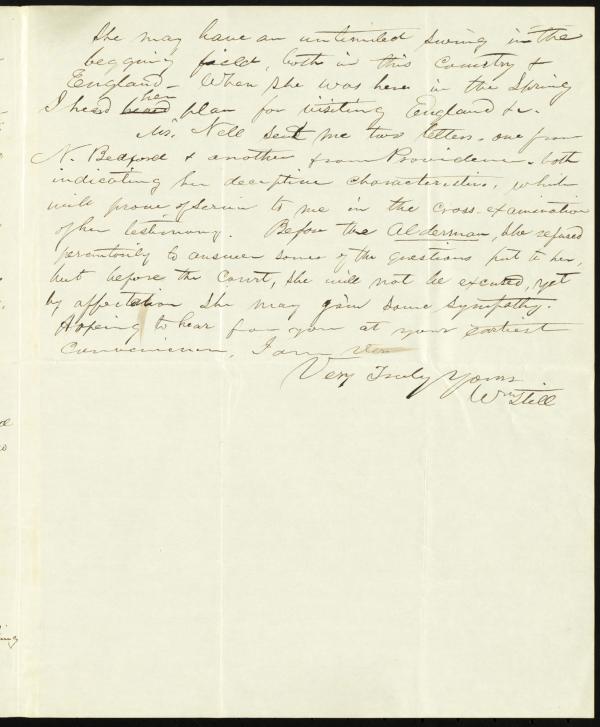 She may have an unlimited swing in the
begging field, both in this country &
England – When she was here in the Spring
I heard her plan for visiting England &c.
Mr. Nell sent me two letters – one from
N. Bedford & another from Providence – both
indicating her deceptive characteristics, which
will prove of service to me in the cross-examination
of her testimony. Before the Alderman, she refused
peremtorily to answer some of the questions put to her,
but before the Court, she will not be excused, yet
by affectation she may gain some sympathy.
Hoping to hear from you at your earliest
convenience, I am
Very Truly Yours
Wm Still